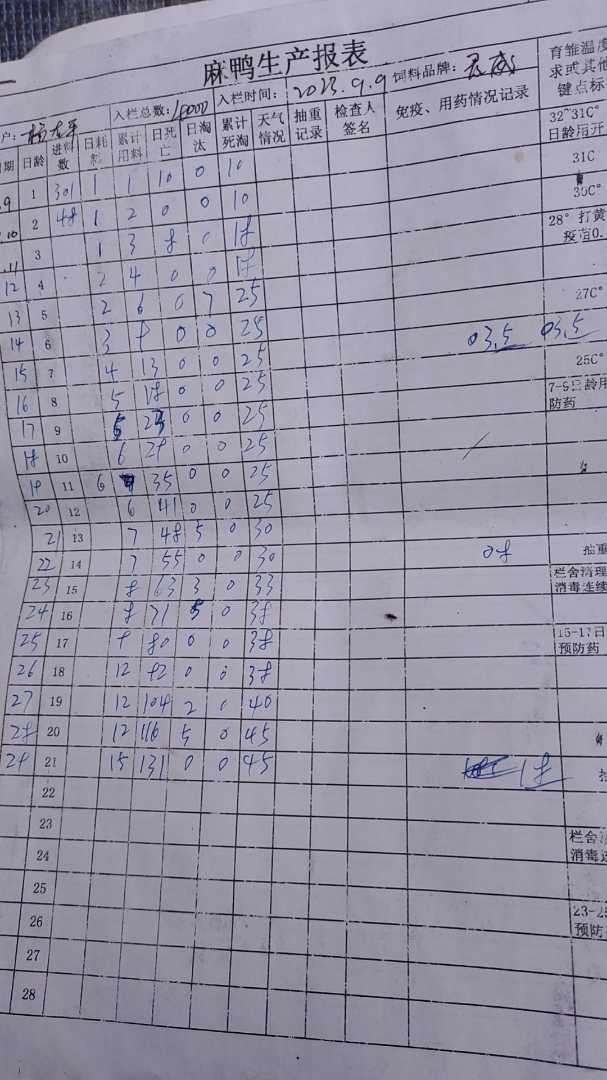 麻鸭生产报表
户: 入栏总数: 入栏时间: 2023.9.9 饲料品牌: 育雏温度
求或其他
键点标
日期 日龄 进料数 日耗料 累计用料 日死亡 日淘汰 累计死淘 天气情况 抽重记录 检查人签名 免疫、用药情况记录
32~31C°
日龄用开
.9 1 301 1 1 10 0 10 31C
.10 2 48 1 2 0 0 10 30C°
.11 3 1 3 8 0 18 28° 打黄
疫苗0.
12 4 4 0 0 18
13 5 2 6 0 7 25 27C°
14 6 3 9 0 0 25 03.5 03.5
15 7 4 13 0 0 25 25C°
16 8 5 18 0 0 25 7-9日龄用
防药
17 9 5 0 0 25
18 10 6 29 0 0 25
19 11 6 35 0 0 25
20 12 6 41 0 0 25
21 13 7 48 5 0 30
22 14 7 55 0 0 30 08 抽重
23 15 8 63 3 0 33 栏舍清理
消毒连续
24 16 8 71 5 0 38
25 17 9 80 0 0 38 15-17日
预防药
26 18 12 92 0 0 38
27 19 12 104 2 0 40
28 20 12 116 5 0 45
29 21 15 131 0 0 45 18
22
23
24 栏舍清
消毒连
25
26 23-25
预防
27
28